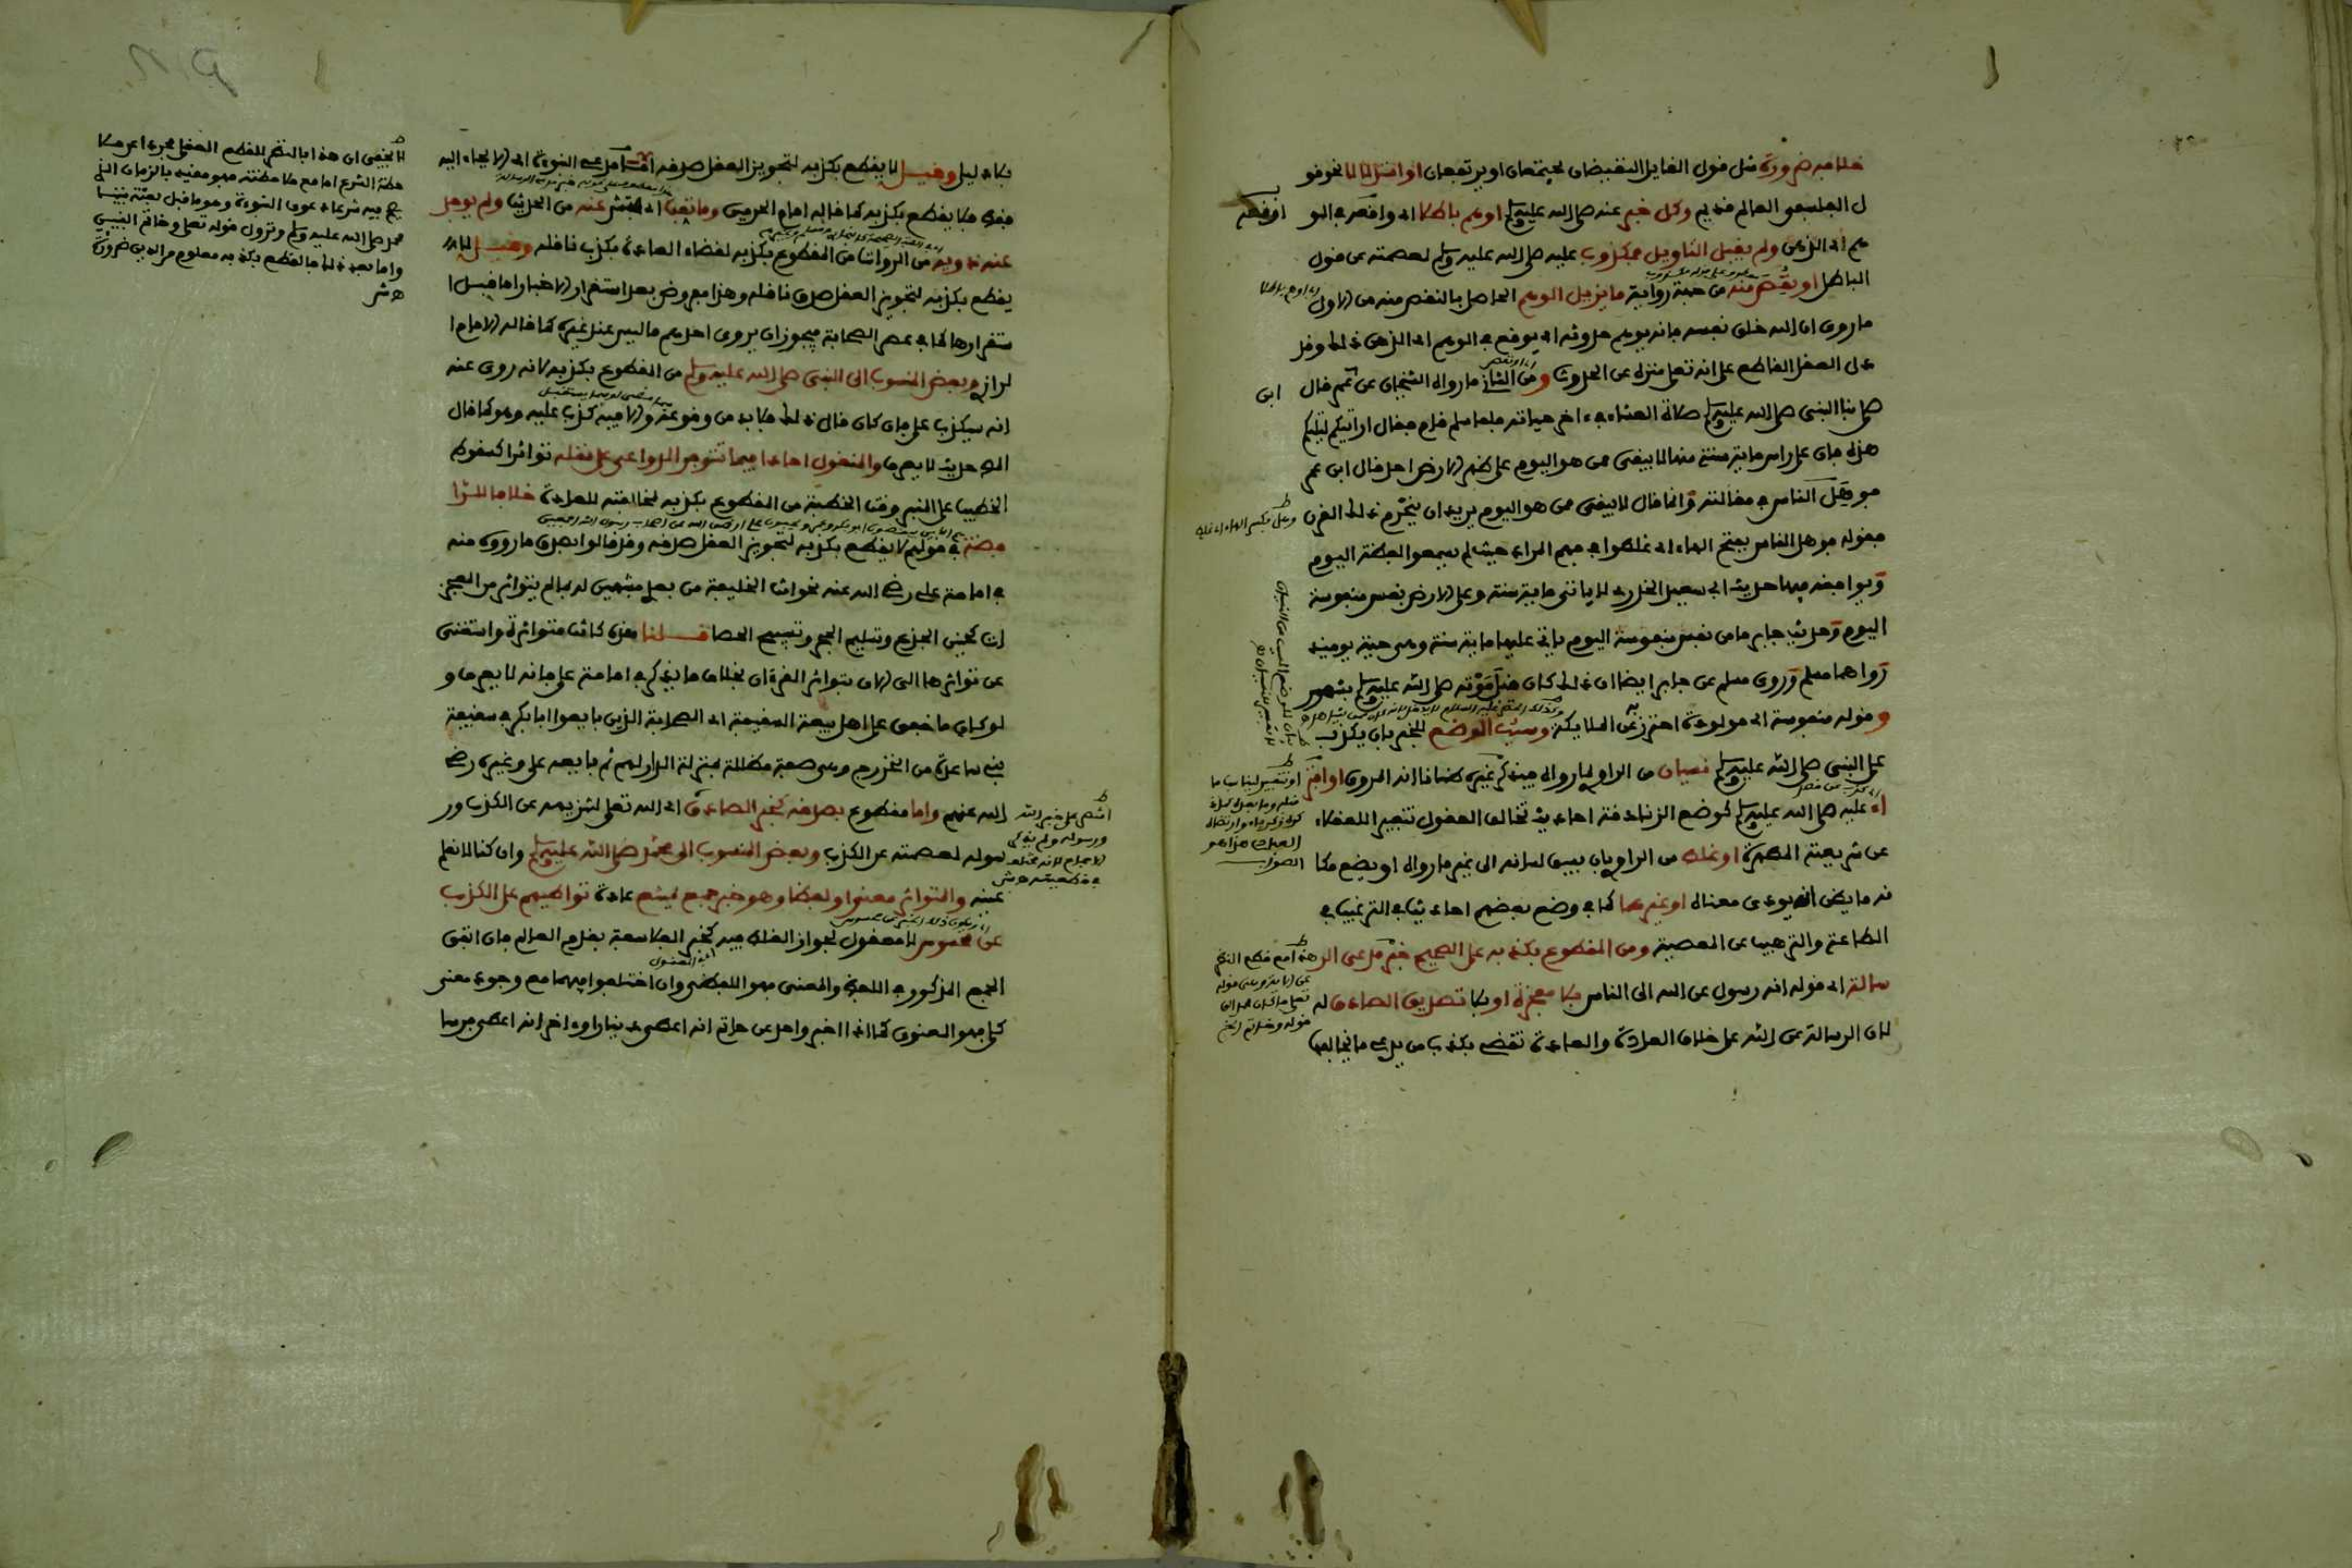 خلافه ضرورة مثل قول القايل النقيضان يجتمعان او يرتفعان او استدلالا نحو قو
ل الفلسفي العالم قديم وكل خبر عنه صلى الله عليه وسلم اوهم باطلا اي اوقعه في الو
هم اي الذهن ولم يقبل التاويل فمكذوب عليه صلى الله عليه وسلم لعصمته عن قول
الباطل او نقص منه من جهة رواية ما يزيل الوهم الحاصل بالنقص منه من الاول
ما روي ان الله خلق نفسه فانه يوهم حدوثه اي يوقع في الوهم اي الذهن ذلك وقد
دل العقل القاطع على انه تعلى منزه عن الحدوث ومن الثاني ما رواه الشيخان عن ابن عمر قال
صلى بنا النبي صلى الله عليه وسلم صلاة العشاء في اخر حياته فلما سلم قام فقال ارايتكم ليلتكم
هذه فان على راس ماية سنة منها لا يبقى ممن هو اليوم على ظهر الارض احد قال ابن عمر
فوهل الناس في مقالته وانما قال لا يبقى ممن هو اليوم يريد ان ينخرم ذلك القرن
فقوله فوهل الناس بفتح الهاء اي غلطوا في فهم المراد حيث لم يسمعوا لفظة اليوم
ويوافقه فيها حديث ابي سعيد الخدري لا ياتي ماية سنة وعلى الارض نفس منفوسة
اليوم وحديث جابر ما من نفس منفوسة اليوم ياتي عليها ماية سنة وهي حية يومئذ
رواهما مسلم وروى مسلم عن جابر ايضا ان ذلك كان قبل موته صلى الله عليه وسلم بشهر
وقوله منفوسة اي مولودة احترز به عن الملايكة وسبب الوضع للخبر بان يكذب
على النبي صلى الله عليه وسلم نسيان من الراوي لما رواه فيذكر غيره ظانا انه المروي او افتر
اء عليه صلى الله عليه وسلم كوضع الزنادقة احاديث تخالف العقول تنفيرا للعقلاء
عن شريعته المطهرة او غلط من الراوي بان يسبق لسانه الى غير ما رواه او يضع مكا
نه ما يظن انه يودي معناه او غيرهما كما في وضع بعضهم احاديث في الترغيب في
الطاعة والترهيب عن المعصية ومن المقطوع بكذبه على الصحيح خبر مدعي الر
سالة اي قوله انه رسول عن الله الى الناس بلا معجزة او بلا تصديق الصادق له
لان الرسالة عن الله على خلاف العادة والعادة تقضي بكذب من يدعي ما يخالفها
بلا دليل وقيل لا يقطع بكذبه لتجويز العقل صدقه اما مدعي النبوة اي الايحاء اليه
فقط فلا يقطع بكذبه كما قاله امام الحرمين وما نقب اي فتش عنه من الحديث ولم يوجد
عند ذويه من الرواة من المقطوع بكذبه لقضاء العادة بكذب ناقله وقيل لا
يقطع بكذبه لتجويز العقل صدق ناقله وهذا مفروض بعد استقرار الاخبار اما قبل ا
ستقرارها كما في عصر الصحابة فيجوز ان يروي احدهم ما ليس عند غيره كما قاله الامام ا
لرازي وبعض المنسوب الى النبي صلى الله عليه وسلم من المقطوع بكذبه لانه روي عنه
انه سيكذب علي فان كان قال ذلك فلا بد من وقوعه والا فيه كذب عليه وهو كما قال
المص حديث لا يعرف والمنقول احادا فيما تتوفر الدواعي على نقله تواترا كسقوط
الخطيب على المنبر وقت الخطبة من المقطوع بكذبه لمخالفته للعادة خلافا للرا
فضة في قولهم لا يقطع بكذبه لتجويز العقل صدقه وقد قالوا بصدق ما رووه منه
في امامة علي رضي الله عنه نحو انت الخليفة من بعدي مشبهين له بما لم يتواتر من المعجز
ات كحنين الجذع وتسليم الحجر وتسبيح الحصا قلنا هذه كانت متواترة واستغني
عن تواترها الى الان بتواتر القرءان بخلاف ما يذكر في امامة علي فانه لا يعرف و
لو كان ما خفي على اهل بيعة السقيفة اي الصحابة الذين بايعوا ابا بكر في سقيفة
بني ساعدة من الخزرج وهي صفة مظللة بمنزلة الدار لهم ثم بايعه علي وغيره رضي
الله عنهم واما مقطوع بصدقه كخبر الصادق اي الله تعلى لتنزيهه عن الكذب ور
سوله لعصمته عن الكذب وبعض المنسوب الى محمد صلى الله عليه وسلم وان كنا لا نعلم
عينه والمتواتر معنى او لفظا وهو خبر جمع يمتنع عادة تواطيهم على الكذب
عن محسوس لا معقول لجواز الغلط فيه كخبر الفلاسفة بقدم العالم فان اتفق
الجمع المذكور في اللفظ والمعنى فهو اللفظي وان اختلفوا فيهما مع وجود معنى
كلي فهو المعنوي كما اذا اخبر واحد عن حاتم انه اعطى دينارا واخر انه اعطى فرسا
لا يخفى ان هذا بالنظر للقطع العقلي مجردا عن ملا
حظة الشرع اما مع ملاحظته فهو مقيد بالزمان الذي
يصح فيه شرعا دعوى النبوة وهو ما قبل بعثة نبينا
محمد صلى الله عليه وسلم ونزول قوله تعلى وخاتم النبيين
واما بعد ذلك فالقطع بكذبه معلوم من الدين ضرورة